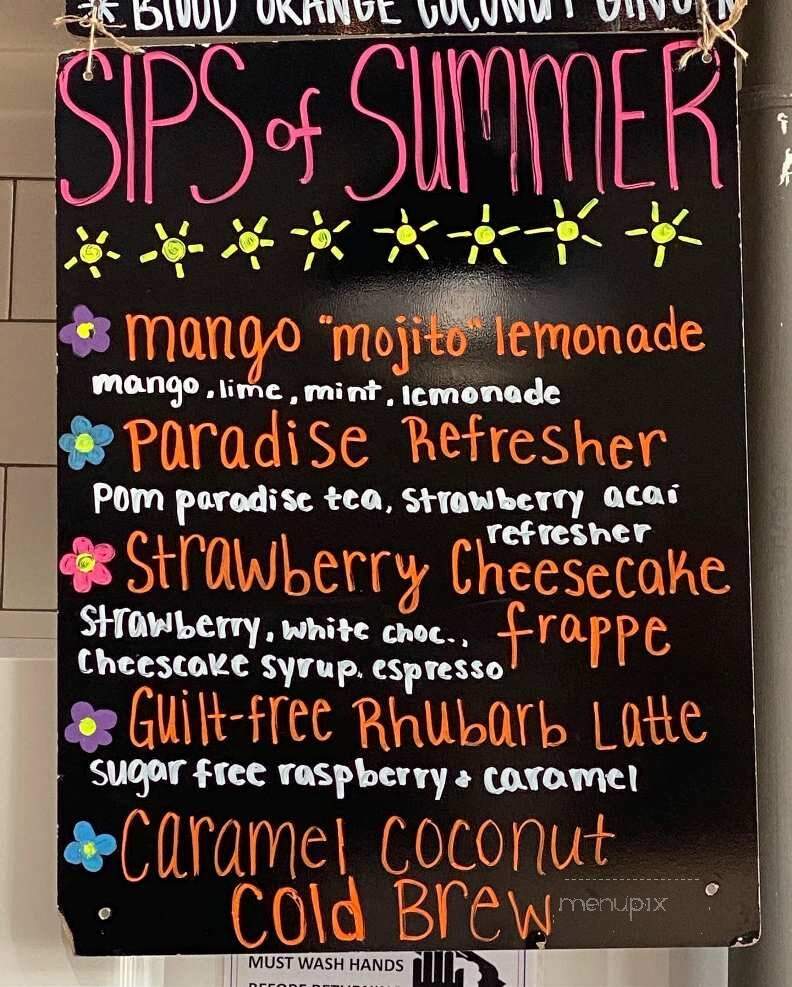 BLOOD ORANGE COCONUT
SIPS of SUMMER
mango "mojito" lemonade
mango, lime, mint, lemonade
Paradise Refresher
Pom paradise tea, strawberry acai
refresher
Strawberry Cheesecake
frappe
strawberry, white choc.,
Cheescake syrup, espresso
Guilt-free Rhubarb Latte
sugar free raspberry & caramel
Caramel Coconut
Cold Brew
menupix
MUST WASH HANDS